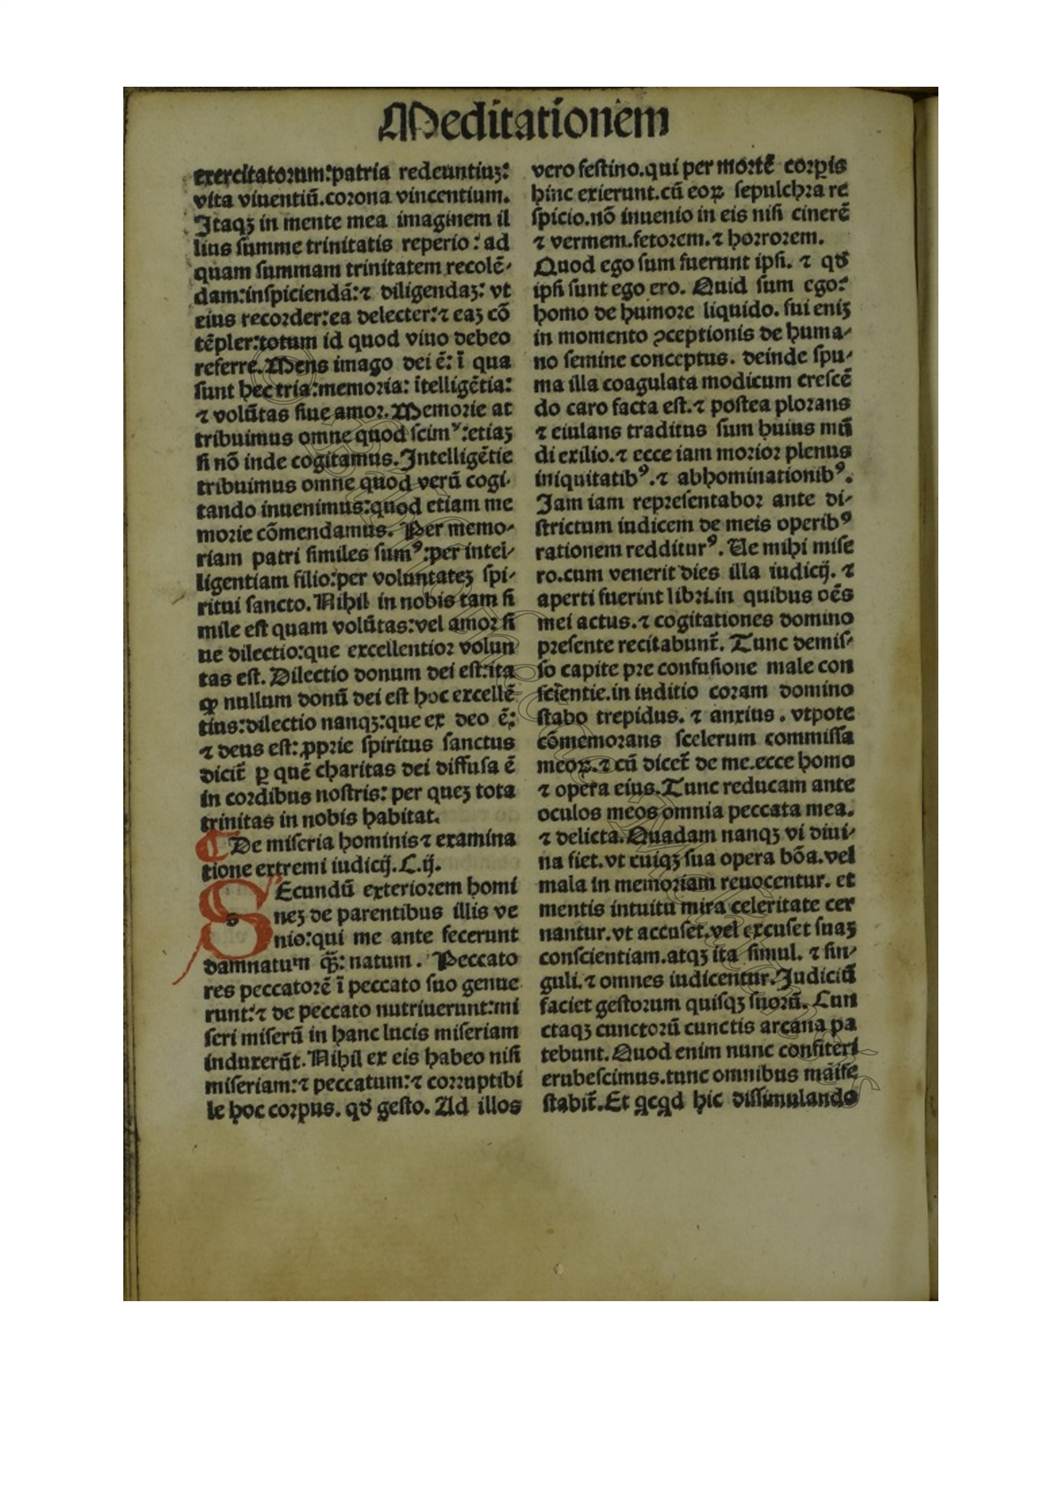 Meditationem
exercitatorum:patria redeuntiuꝫ:
vita viuentiū.corona vincentium.
Itaqꝫ in mente mea imaginem il
lius summe trinitatis reperio: ad
quam summam trinitatem recolē-
dam:inspiciendā:⁊ diligendaꝫ: vt
eius recorder:ea delecter:⁊ eaꝫ cō
tēpler:totum id quod viuo debeo
referre.Mens imago dei ē: ī qua
sunt hec tria:memoria: ītelligētia:
⁊ volūtas siue amor.Memorie at
tribuimus omne quod scimꝰ:etiaꝫ
si nō inde cogitamus.Intelligētie
tribuimus omne quod verū cogi-
tando inuenimus:quod etiam me
morie cōmendamus. Per memo-
riam patri similes sumꝰ:per intel-
ligentiam filio:per voluntateꝫ spi-
ritui sancto. Nihil in nobis tam si
mile est quam volūtas:vel amor si
ue dilectio:que excellentior volun
tas est. Dilectio donum dei est:ita
ꝙ nullum donū dei est hoc excellē
tius:dilectio nanqꝫ:que ex deo ē:
⁊ deus est: ꝓprie spiritus sanctus
dicit̄ ꝑ quē charitas dei diffusa ē
in cordibus nostris: per queꝫ tota
trinitas in nobis habitat.
¶ De miseria hominis ⁊ examina
tione extremi iudicij. C.ij.
SEcundū exteriorem homi
neꝫ de parentibus illis ve
nio:qui me ante fecerunt
damnatum qꝫ̄: natum. Peccato
res peccatorē ī peccato suo genue
runt:⁊ de peccato nutriuerunt:mi
seri miserū in hanc lucis miseriam
induxerūt. Nihil ex eis habeo nisi
miseriam:⁊ peccatum:⁊ corruptibi
le hoc corpus. qđ gesto. Ad illos
vero festino.qui per mortē corꝑis
hinc exierunt.cū eoꝝ sepulchra re
spicio.nō inuenio in eis nisi cinerē
⁊ vermem.fetorem.⁊ horrorem.
Quod ego sum fuerunt ipsi. ⁊ qđ
ipsi sunt ego ero. Quid sum ego:
homo de humore liquido. fui eniꝫ
in momento ꝯceptionis de huma-
no semine conceptus. deinde spu-
ma illa coagulata modicum crescē
do caro facta est.⁊ postea plorans
⁊ eiulans traditus sum huius mū
di exilio.⁊ ecce iam morior plenus
iniquitatibꝰ.⁊ abhominationibꝰ.
Jam iam representabor ante di-
strictum iudicem de meis operibꝰ
rationem redditurꝰ. Ve mihi mise
ro.cum venerit dies illa iudicij. ⁊
aperti fuerint libri.in quibus oēs
mei actus.⁊ cogitationes domino
presente recitabunt̄. Tunc demis-
so capite pre confusione male con
scientie.in iuditio coram domino
stabo trepidus. ⁊ anxius. vtpote
cōmemorans scelerum commissa
meoꝝ.⁊ cū dicet̄ de me.ecce homo
⁊ opera eius.Tunc reducam ante
oculos meos omnia peccata mea.
⁊ delicta.Quadam nanqꝫ vi diui-
na fiet.vt cuiqꝫ sua opera bōa.vel
mala in memoriam reuocentur. et
mentis intuitu mira celeritate cer
nantur.vt accuset.vel excuset suaꝫ
conscientiam.atqꝫ ita simul. ⁊ sin-
guli.⁊ omnes iudicentur.Judiciū
faciet gestorum quisqꝫ suorū. Cun
ctaqꝫ cunctorū cunctis arcana pa
tebunt.Quod enim nunc confiteri
erubescimus.tunc omnibus māife
stabit̄.Et qcqd hic dissimulando